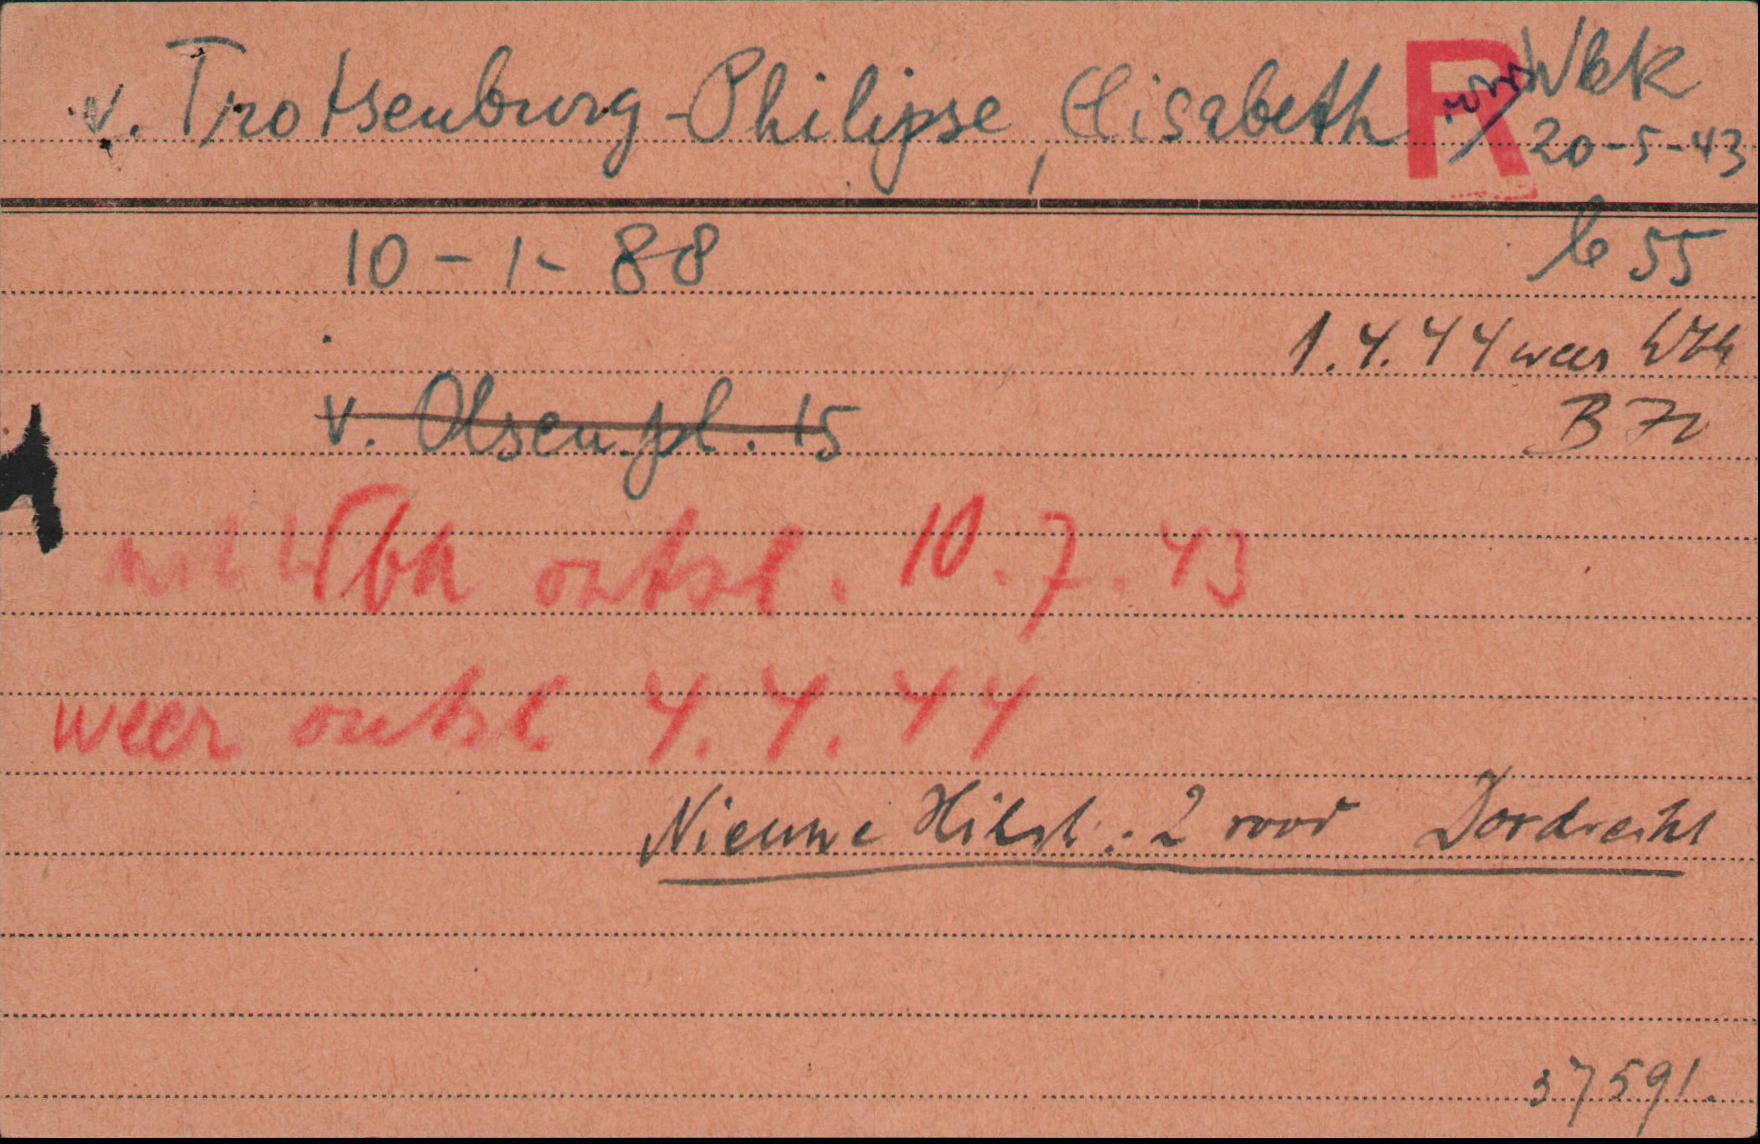 v. Trotsenburg-Philipse, Elisabeth R Wbk
20-5-43
10-1-88
b 55
1.4.44 weer Wbk
v. Olsen.pl. 15
B 72
uit Wbk ontsl. 10.7.43
weer ontsl 4.4.44
Nieuwe 2 rood Dordrecht
37591.